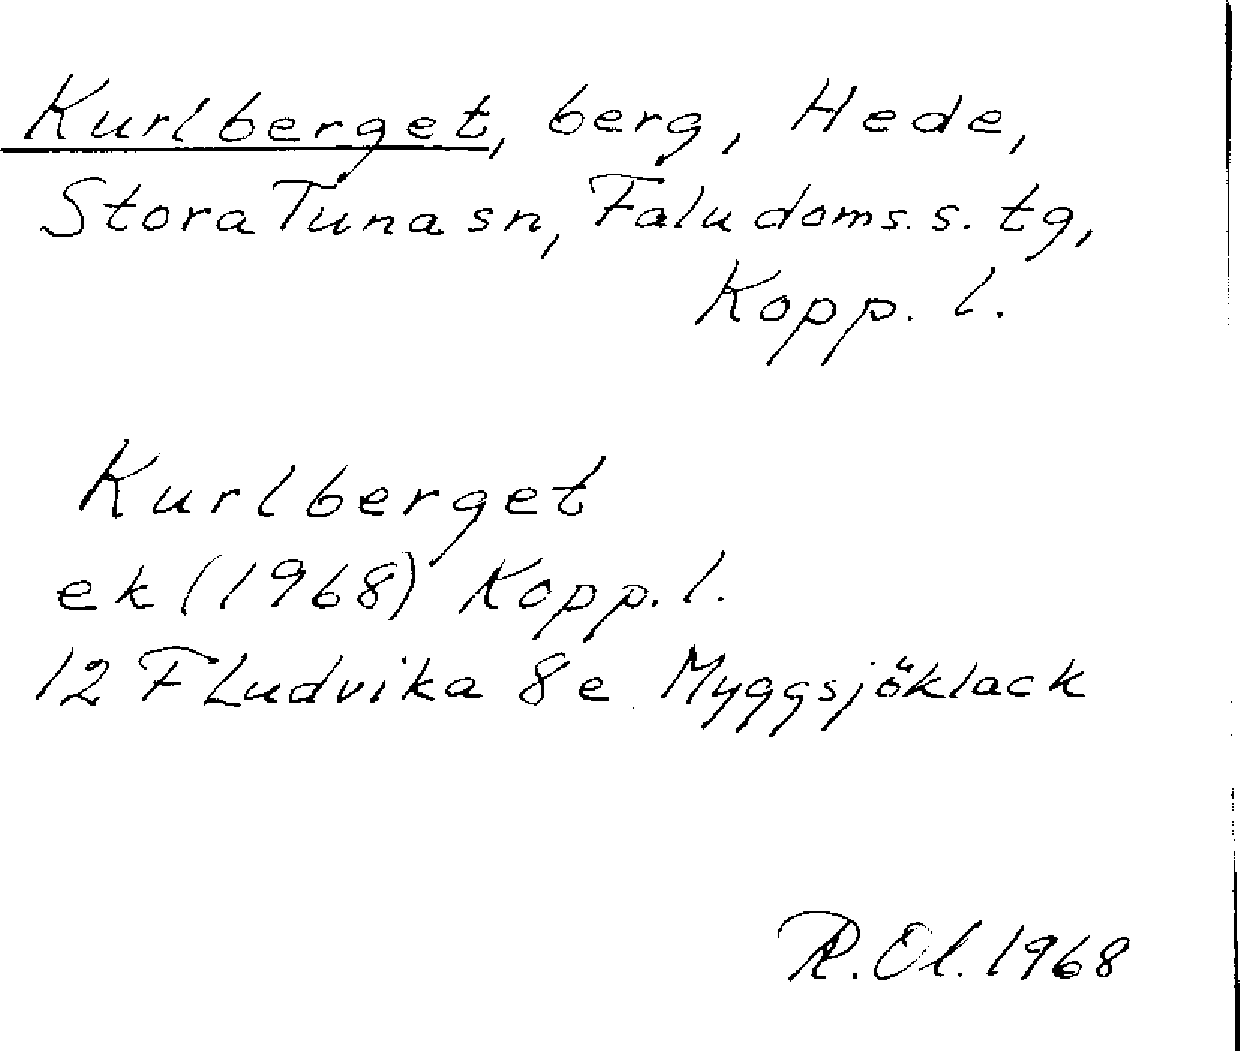 Kurlberget, berg, Hede,
Stora Tuna sn, Falu doms. s. tg,
Kopp. l.
Kurlberget
ek (1968) Kopp. l.
12 F Ludvika 8e Myggsjöklack
R. Ol. 1968